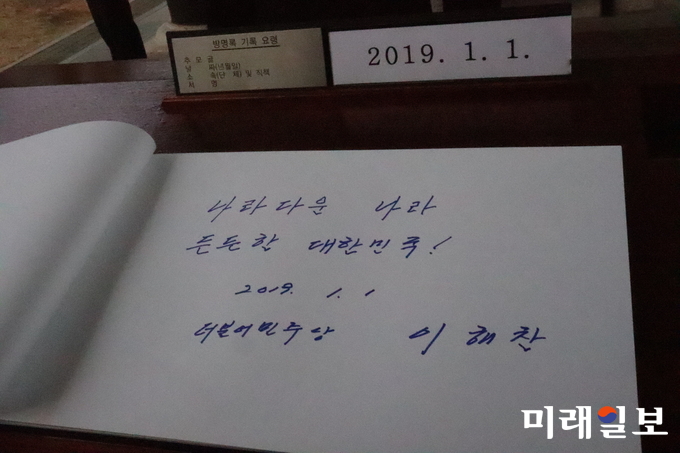 방명록 기록 요령
추 모 글
날 짜(년월일)
소 속(단 체) 및 직책
서 명
2019. 1. 1.
나라다운 나라
든든한 대한민국!
2019. 1. 1
더불어민주당 이해찬
미래일보